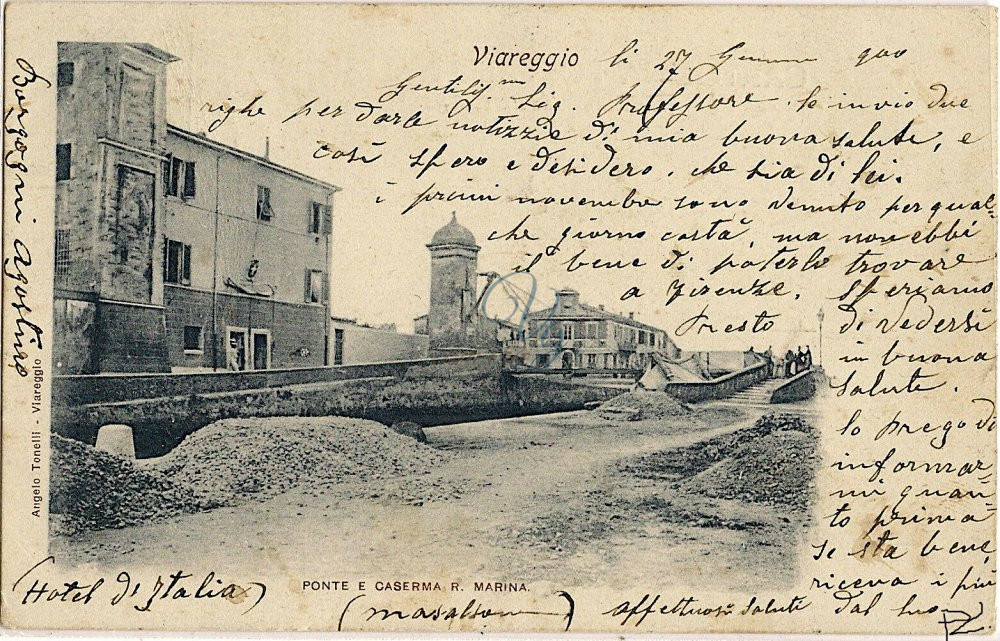 Viareggio li 27 Gennaio 900
Gentilis.mo Sig. Professore. Le invio due
righe per darle notizzie di mia buona salute, e
così spero e desidero. che sia di lei.
i primi novembre sono venuto per qual=
che giorno costà, ma non ebbi
il bene di poterlo trovare
a Firenze. Speriamo
Presto di vedersi
in buona
salute.
lo prego di
informar=
mi quan=
to prima
se sta bene,
riceva i più
affettuosi saluti dal suo
Borgognini Agostino
Angelo Tonelli - Viareggio
(Hotel d'Italia)
PONTE E CASERMA R. MARINA.